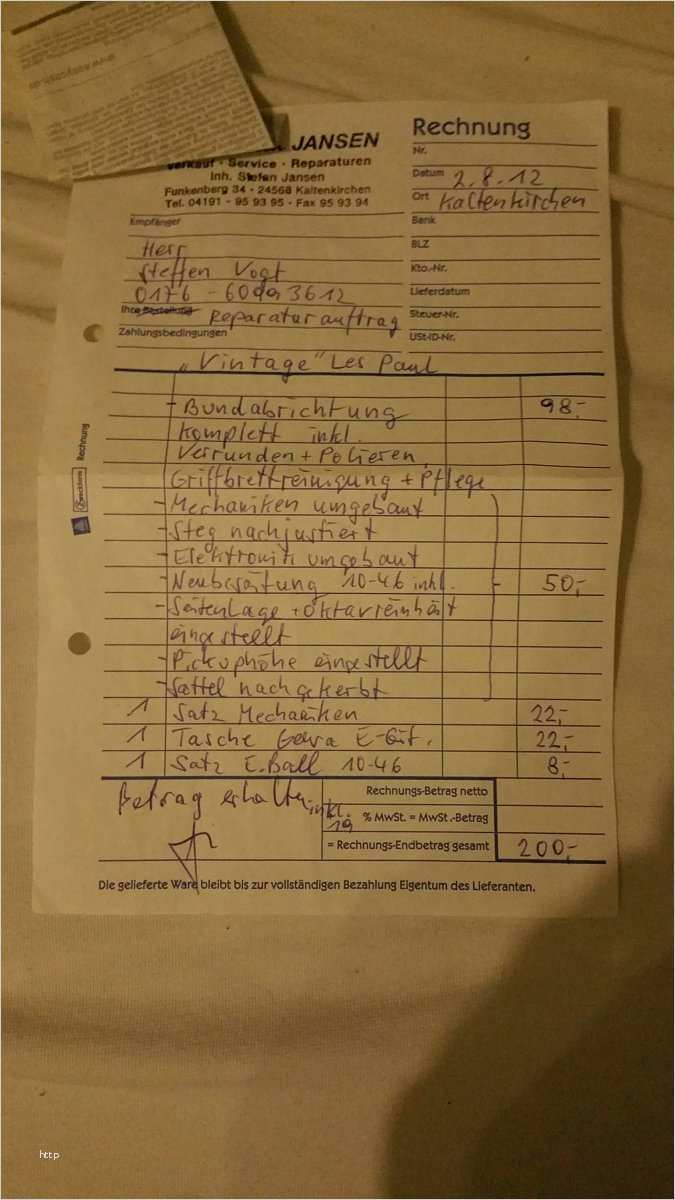 www.easycash.de
JANSEN
Verkauf · Service · Reparaturen
Inh. Stefan Jansen
Funkenberg 34 · 24568 Kaltenkirchen
Tel. 04191 - 95 93 95 · Fax 95 93 94
Rechnung
Nr.
Datum 2.8.12
Ort Kaltenkirchen
Bank
BLZ
Kto.-Nr.
Lieferdatum
Steuer-Nr.
USt-ID-Nr.
Empfänger
Herr
Steffen Vogt
0176 -
Ihre Bestellung Reparaturauftrag
Zahlungsbedingungen
„Vintage“ Les Paul
- Bundabrichtung 98,-
Komplett inkl.
Verrunden + Polieren,
Griffbrettreinigung + Pflege
- Mechaniken umgebaut
- Steg nachjustiert
- Elektronik umgebaut
- Neubesaitung 10-46 inkl. 50,-
- Saitenlage + Oktavreinheit
eingestellt
- Pickuphöhe eingestellt
- Sattel nachgekerbt
1 Satz Mechaniken 22,-
1 Tasche Gewa E-Git. 22,-
1 Satz E.Ball 10-46 8,-
Betrag erhalten
Rechnungs-Betrag netto
inkl.
19 % MwSt. = MwSt.-Betrag
= Rechnungs-Endbetrag gesamt 200,-
Die gelieferte Ware bleibt bis zur vollständigen Bezahlung Eigentum des Lieferanten.
Rechnung
Zweckform
http